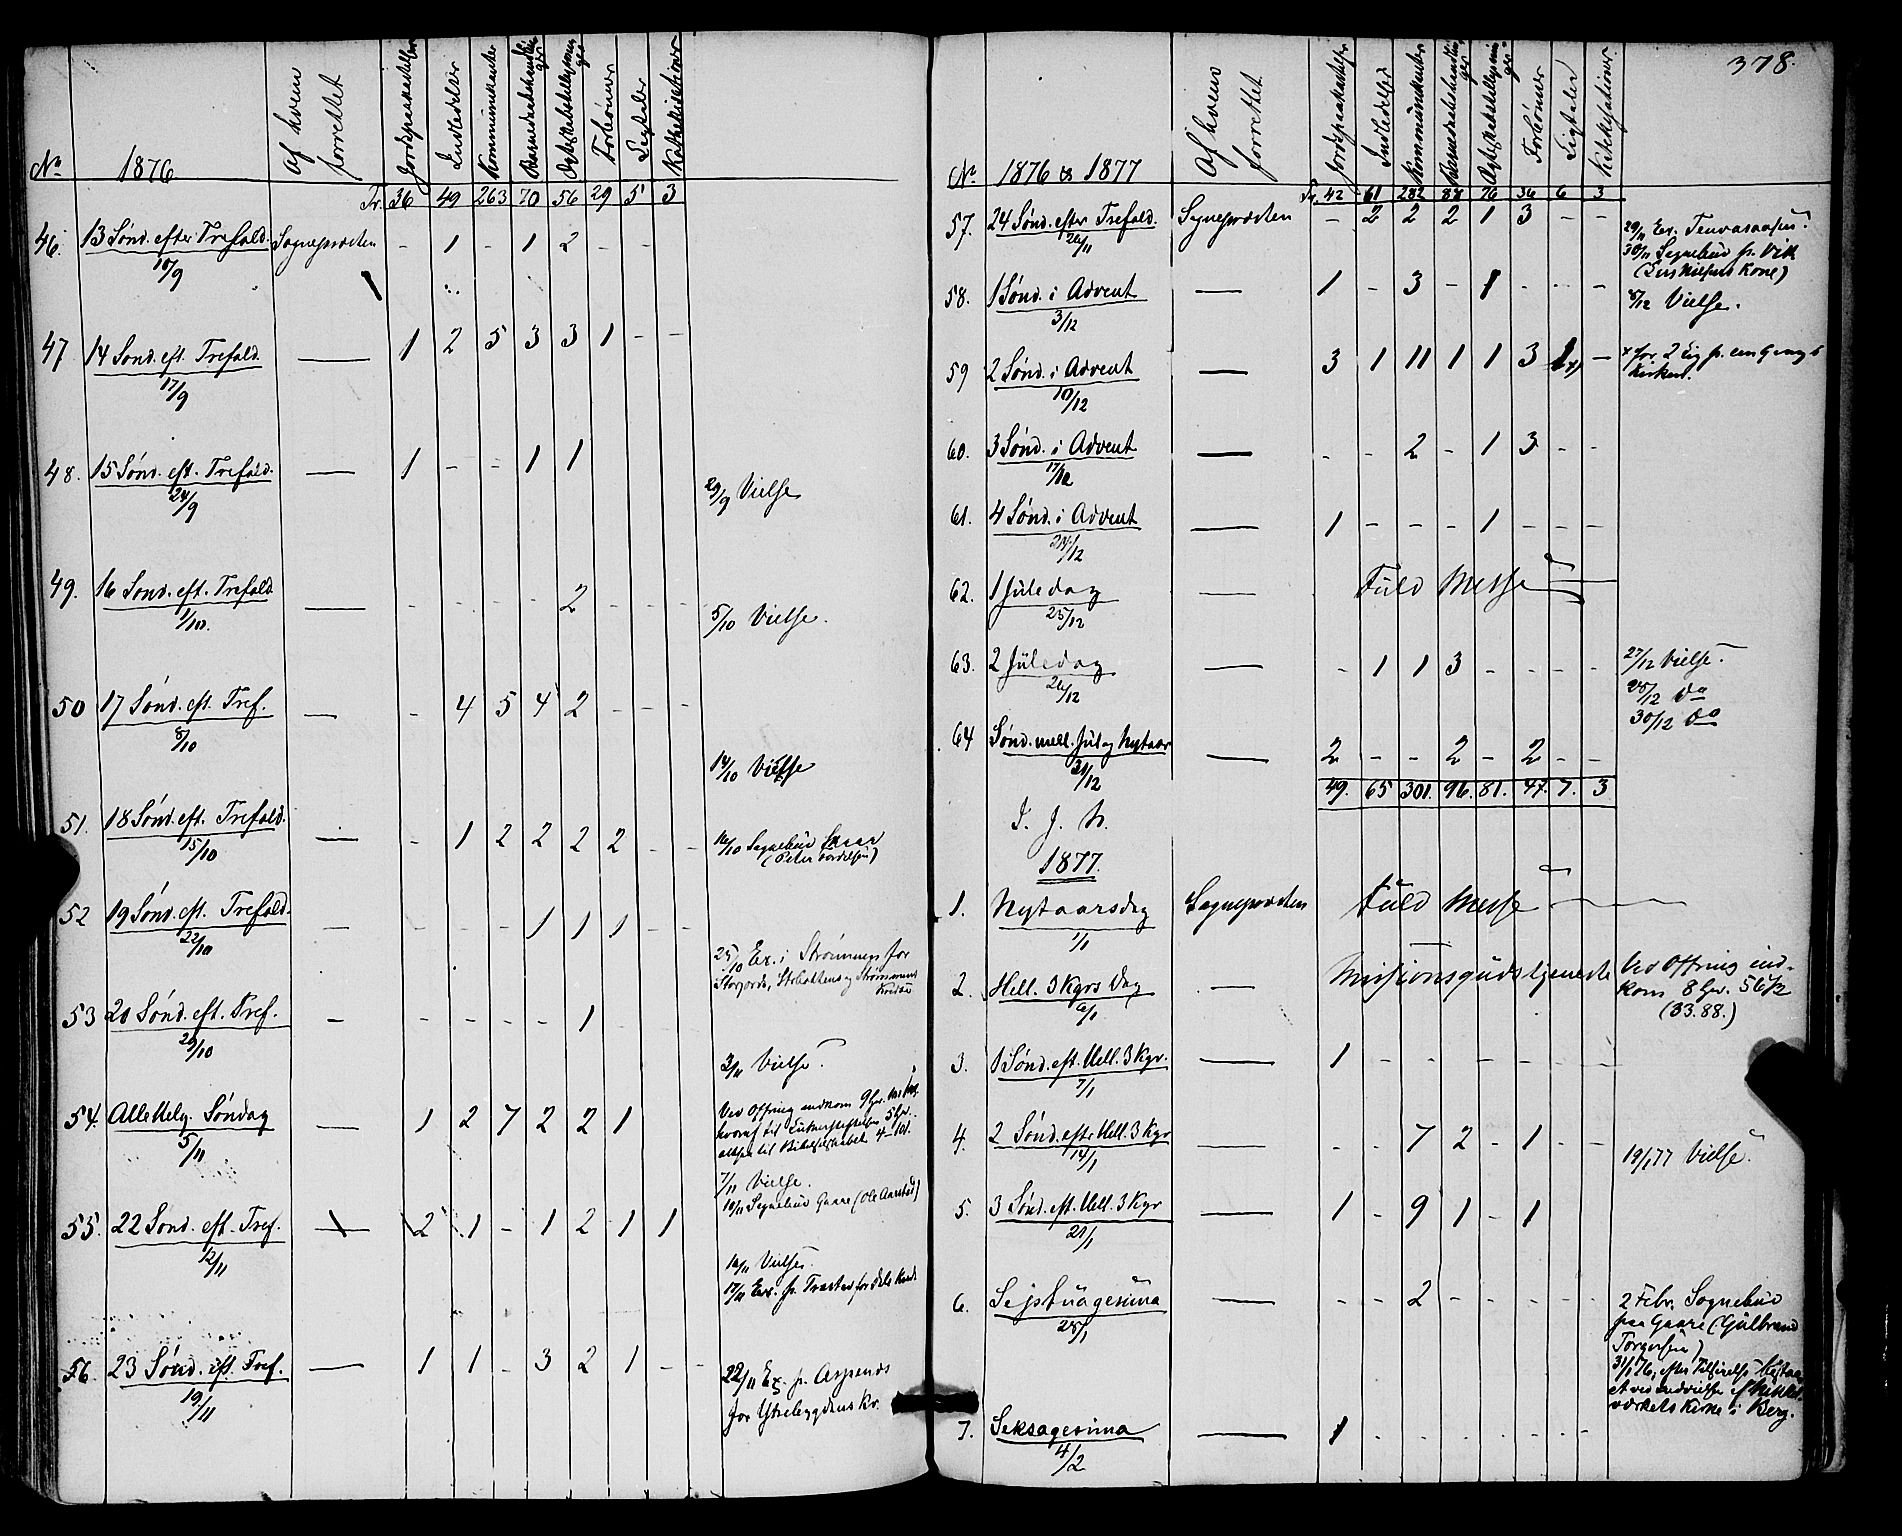 No. 1876 Af hvem forrettet Jordpaakastelser Indledelser Kommunikanter Barnedaabshandlinger Ægteskabstillysninger Forbønner Ligtaler Kathekisationer
Fr. 36 49 263 70 56 29 5 3
46. 13 Sønd. efter Trefold. Sognepræsten - 1 - 1 2 - -
10/9
47 14 Sønd. eft. Trefold. — 1 2 5 3 3 1 - -
17/9
48. 15 Sønd. eft. Trefold. — 1 - - 1 1
24/9
29/9 Vielse
49. 16 Sønd. eft. Trefold — - - - - 2 - - -
1/10.
5/10 Vielse.
50 17 Sønd. eft. Tref. — - 4 5 4 2 - - -
8/10
14/10 Vielse
51. 18 Sønd. eft. Trefold. — - 1 2 2 2 2 - -
15/10
16/10 Sognebud
52 19 Sønd. eft. Trefold. — 1 1 1 - -
22/10
25/10 Ex. i Strømmens for
Storjords, og
Kredse
53 20 Sønd. eft. Tref. — - - - - 1 -
29/10
3/11 Vielse.
54. Alle Helg. Søndag — 1 2 7 2 2 1
5/11
Ved Offring indkom
hvoraf til
altsaa til
7/11 Vielse.
10/11 Sognebud Gaare (Ole Aarstad)
55. 22 Sønd. eft. Tref. — 2 1 - 1 2 1 1
12/11
16/11 Vielse.
17/11 Ex. p. for
56. 23 Sønd. eft. Tref. — 1 1 - 3 2 1 - -
19/11
22/11 Ex. p. Aspenes
for Ytrebygdens Kr.
378.
No. 1876 & 1877 Af hvem forrettet Jordpaakastelser Indledelser Kommunikanter Barnedaabshandlinger Ægteskabstillysninger Forbønner Ligtaler Kathekisationer
Fr. 42 61 282 88 76 36 6 3
57. 24 Sønd. efter Trefold. Sognepræsten - 2 2 2 1 3 - -
26/11
29/11 Ex.
30/11 Sognebud p. Vik
Kone)
58. 1 Sønd. i Advent — 1 - 3 - 1 - - -
3/12
8/12 Vielse.
59 2 Sønd. i Advent — 3 1 11 1 1 3 1 x) -
10/12
x for 2 Lig p. en Gang i
Kirken.
60. 3 Sønd. i Advent — - - 2 - 1 3 - -
17/12
61. 4 Sønd. i Advent — 1 - - - 1 - - -
24/12
62. 1 Juledag — Fuld Messe
25/12
63. 2 Juledag — - 1 1 3 - - - -
26/12
27/12 Vielse.
28/12 do
30/12 do
64 Sønd. mell. Jul og Nytaar — 2 - - 2 - 2 - -
31/12
49. 65 301. 96. 81. 47. 7. 3
I. J. N.
1877.
1. Nytaarsdag Sognepræsten Fuld Messe
1/1
2. Hell. 3 Kgrs Dag — Missionsgudstjeneste
6/1
Ved Offring ind-
kom 8
(33.88.)
3. 1 Sønd. eft. Hell. 3 Kgr. — 1 - - - - - -
7/1
4. 2 Sønd. efter Hell. 3 Kgr — - - 7 2 - 1 - -
14/1
19/1 77 Vielse.
5. 3 Sønd. eft. Hell. 3 Kgr — 1 - 9 1 - 1
21/1
6. Septuagesima — - - 2 - - - - -
28/1
2 Febr. Sognebud
paa Gaare (Gulbrand
Torgersen)
31/1 76, efter Tilsigelse
et ved Indvielse af
værkets Kirke i Berg.
7. Seksagesima — 1 - - - - - -
4/2